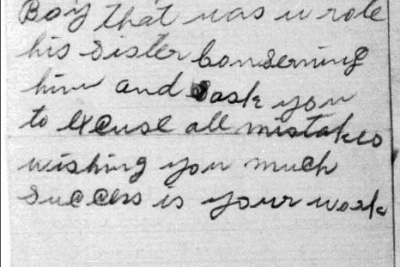 Boy that was wrote
his sister Conserning
him and ask you
to excuse all mistakes
wishing you much
success is your work